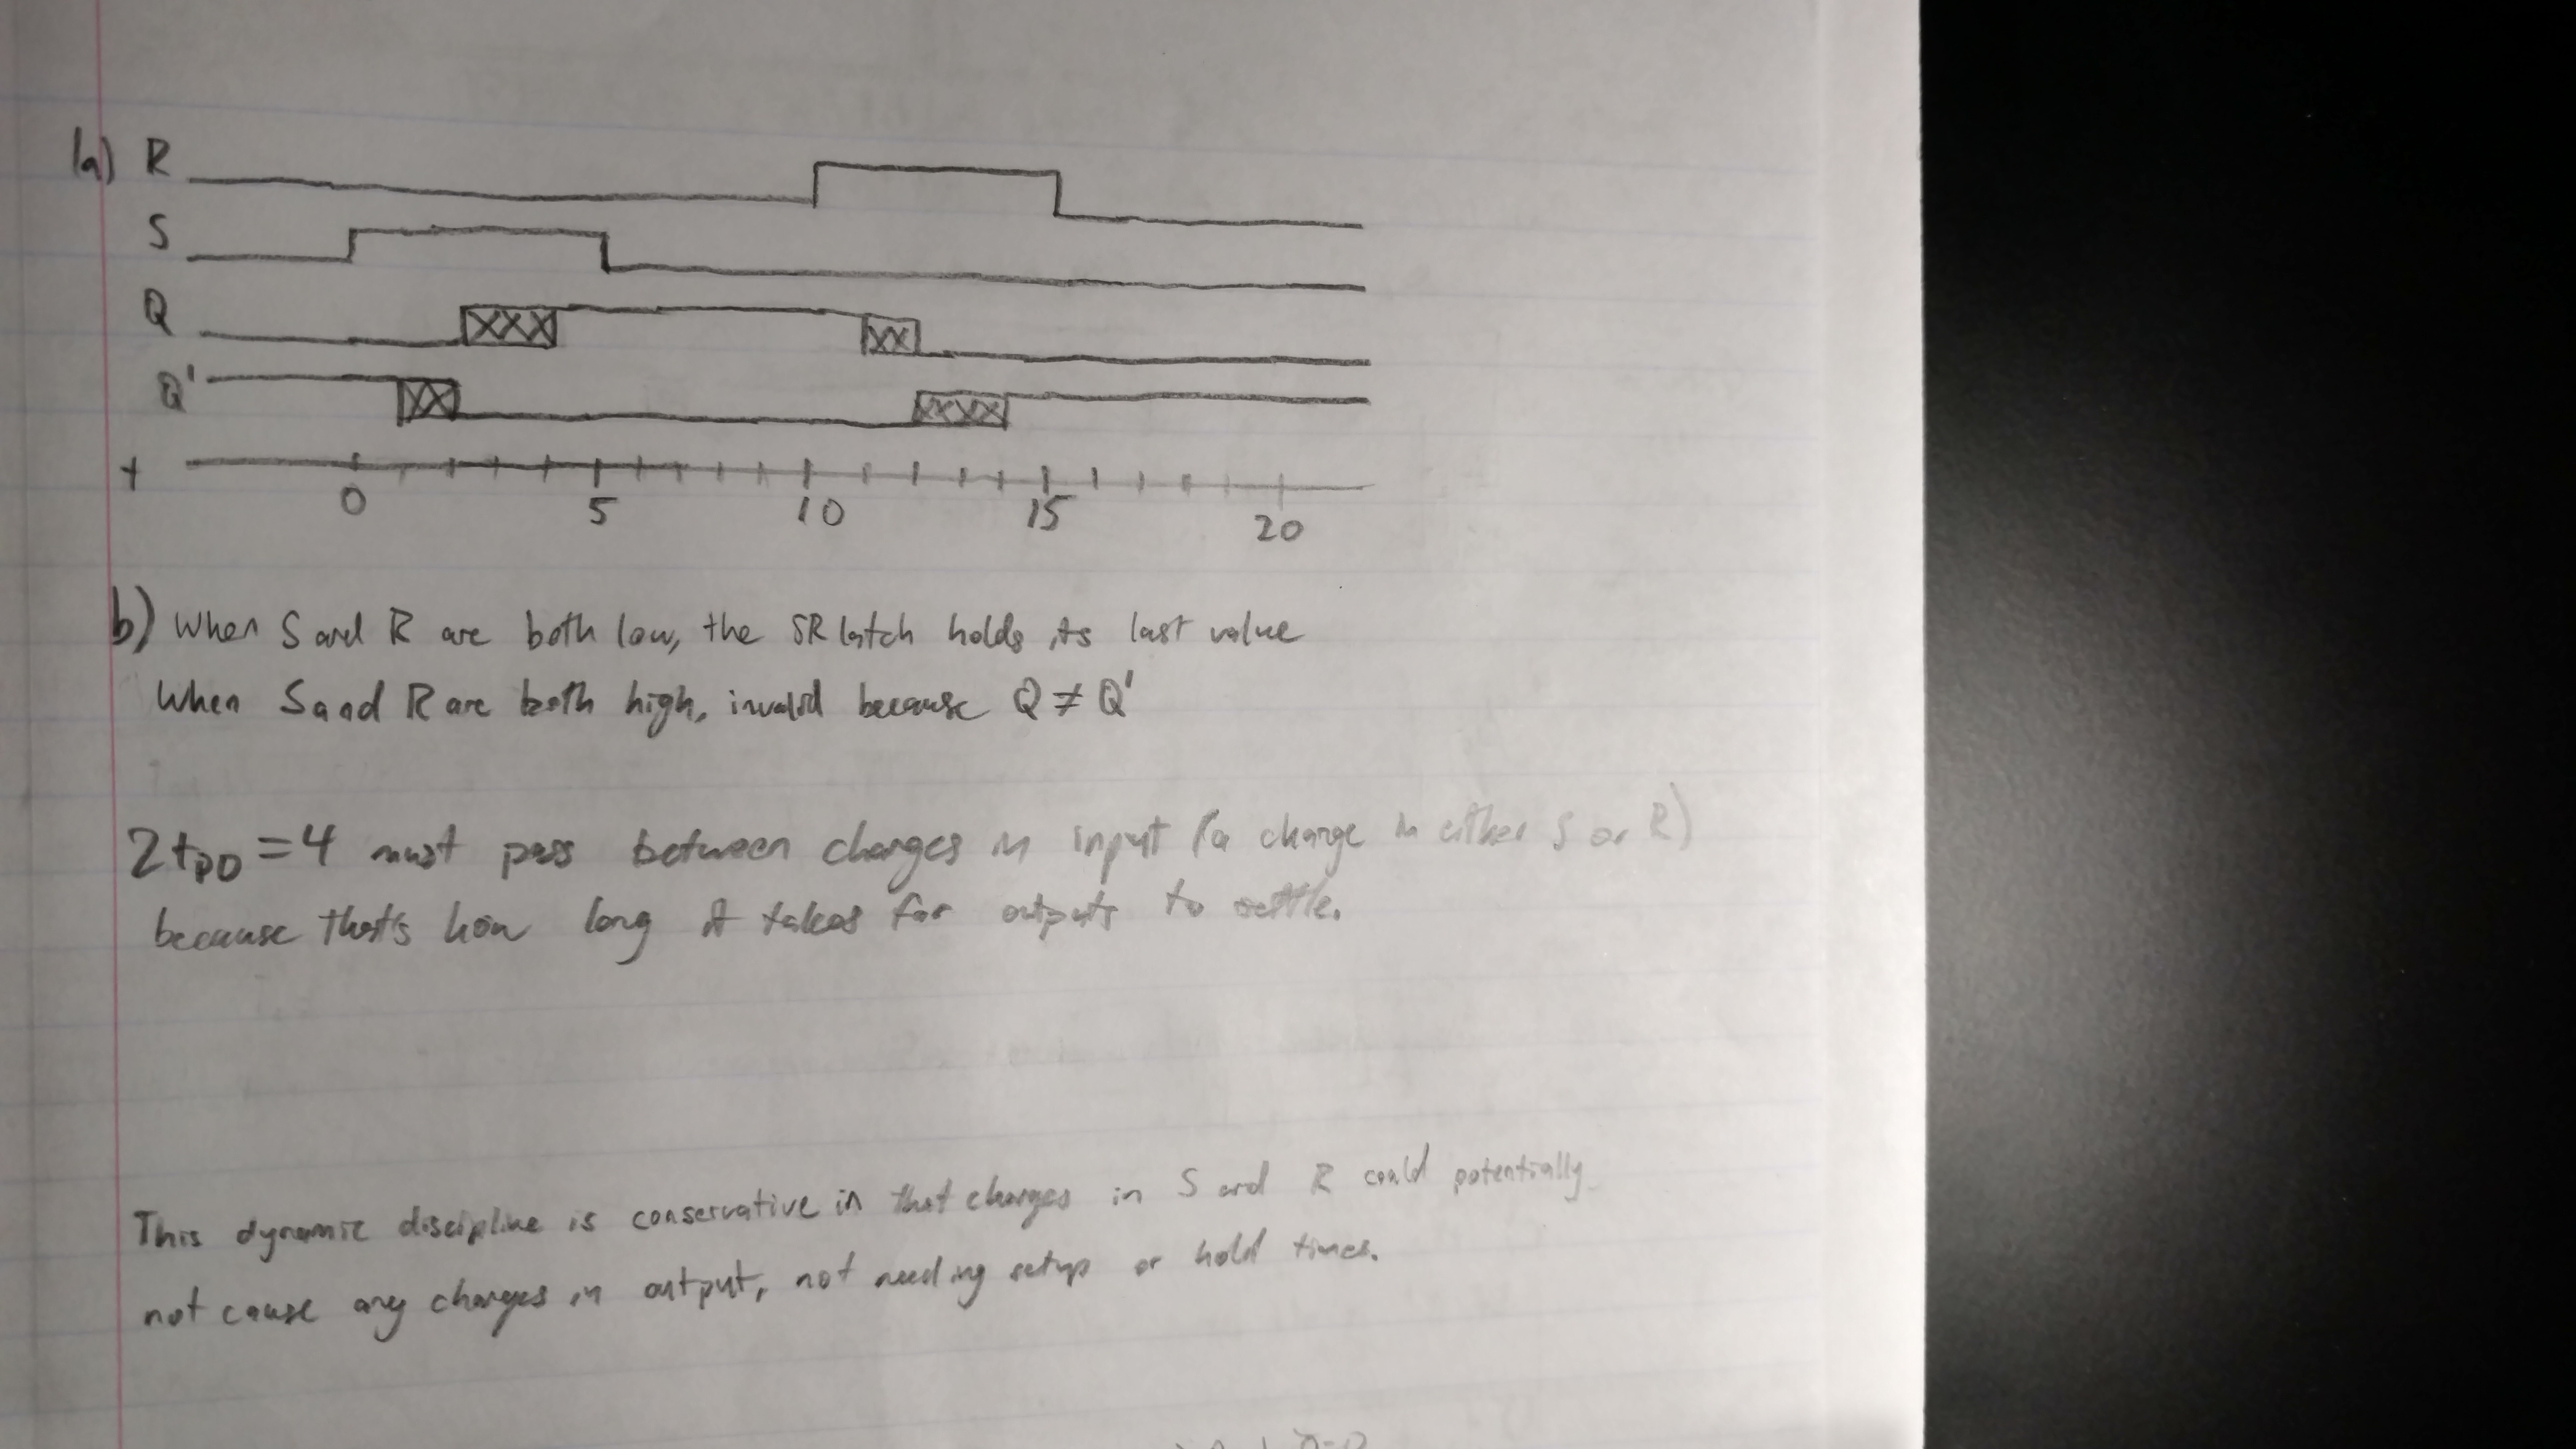 1a) R
S
Q
Q'
t
0 5 10 15 20
b) When S and R are both low, the SR latch holds its last value
When S and R are both high, invalid because Q ≠ Q'
2tPD = 4 must pass between changes in input (a change in either S or R)
because that's how long it takes for outputs to settle.
This dynamic discipline is conservative in that changes in S and R could potentially
not cause any changes in output, not needing setup or hold times.